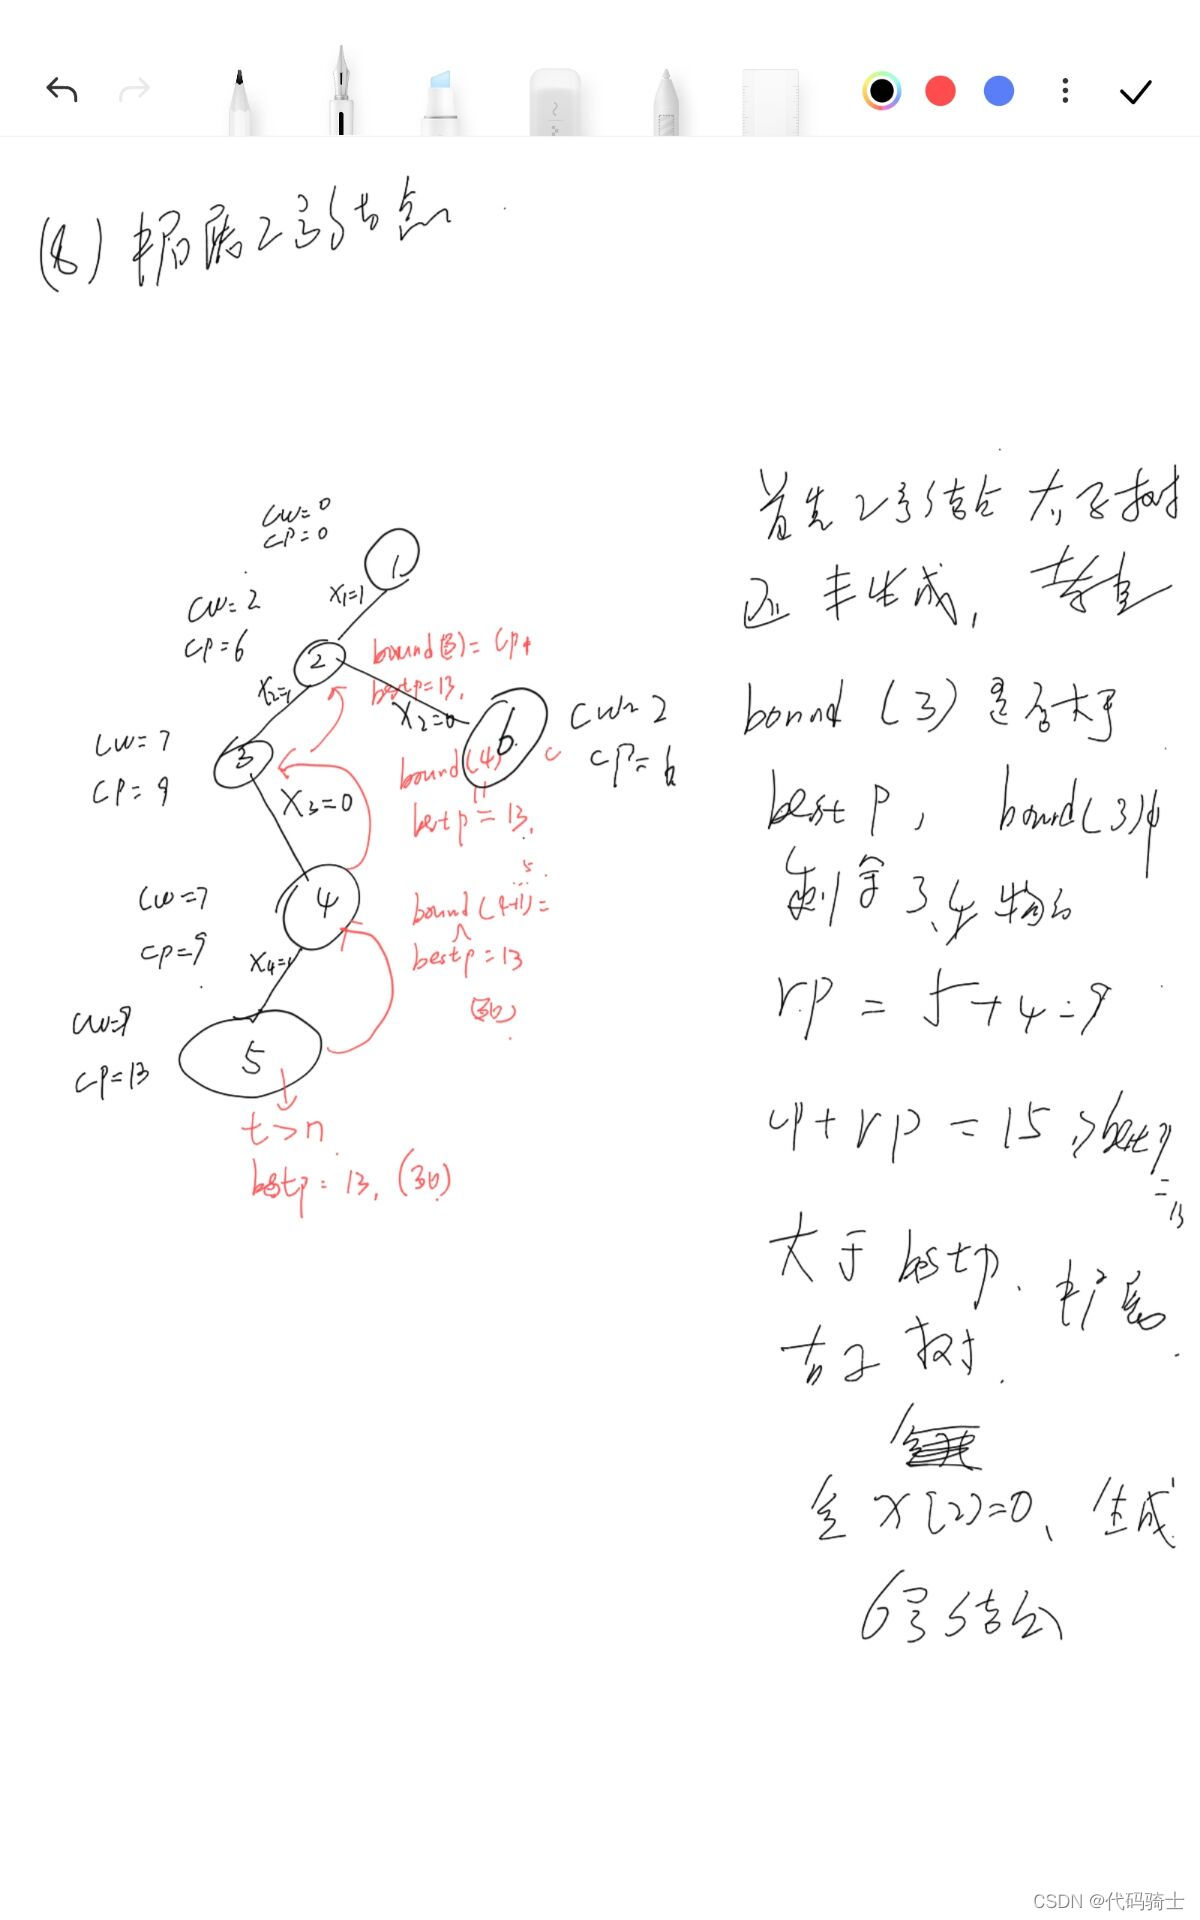 (8) 拓展2号结点
cw=0
cp=0
1
x1=1
cw=2
cp=6
2
bound(3)=cp+
bestp=13,
x2=1
x2=0
6
cw=2
cp=6
cw=7
cp=9
3
x3=0
bound(4)
c
bestp=13,
cw=7
cp=9
4
x4=1
bound(4+1)=
5
bestp=13
(3b)
cw=9
cp=13
5
t>n
bestp=13, (3b)
首先2号结点右子树
还未生成,考查
bound(3)是否大于
bestp, bound(3)中
剩余3、4物品
rp=5+4=9
cp+rp=15>bestp
=13
大于bestp.扩展
右子树.
令x[2]=0、生成
6号结点
CSDN @代码骑士